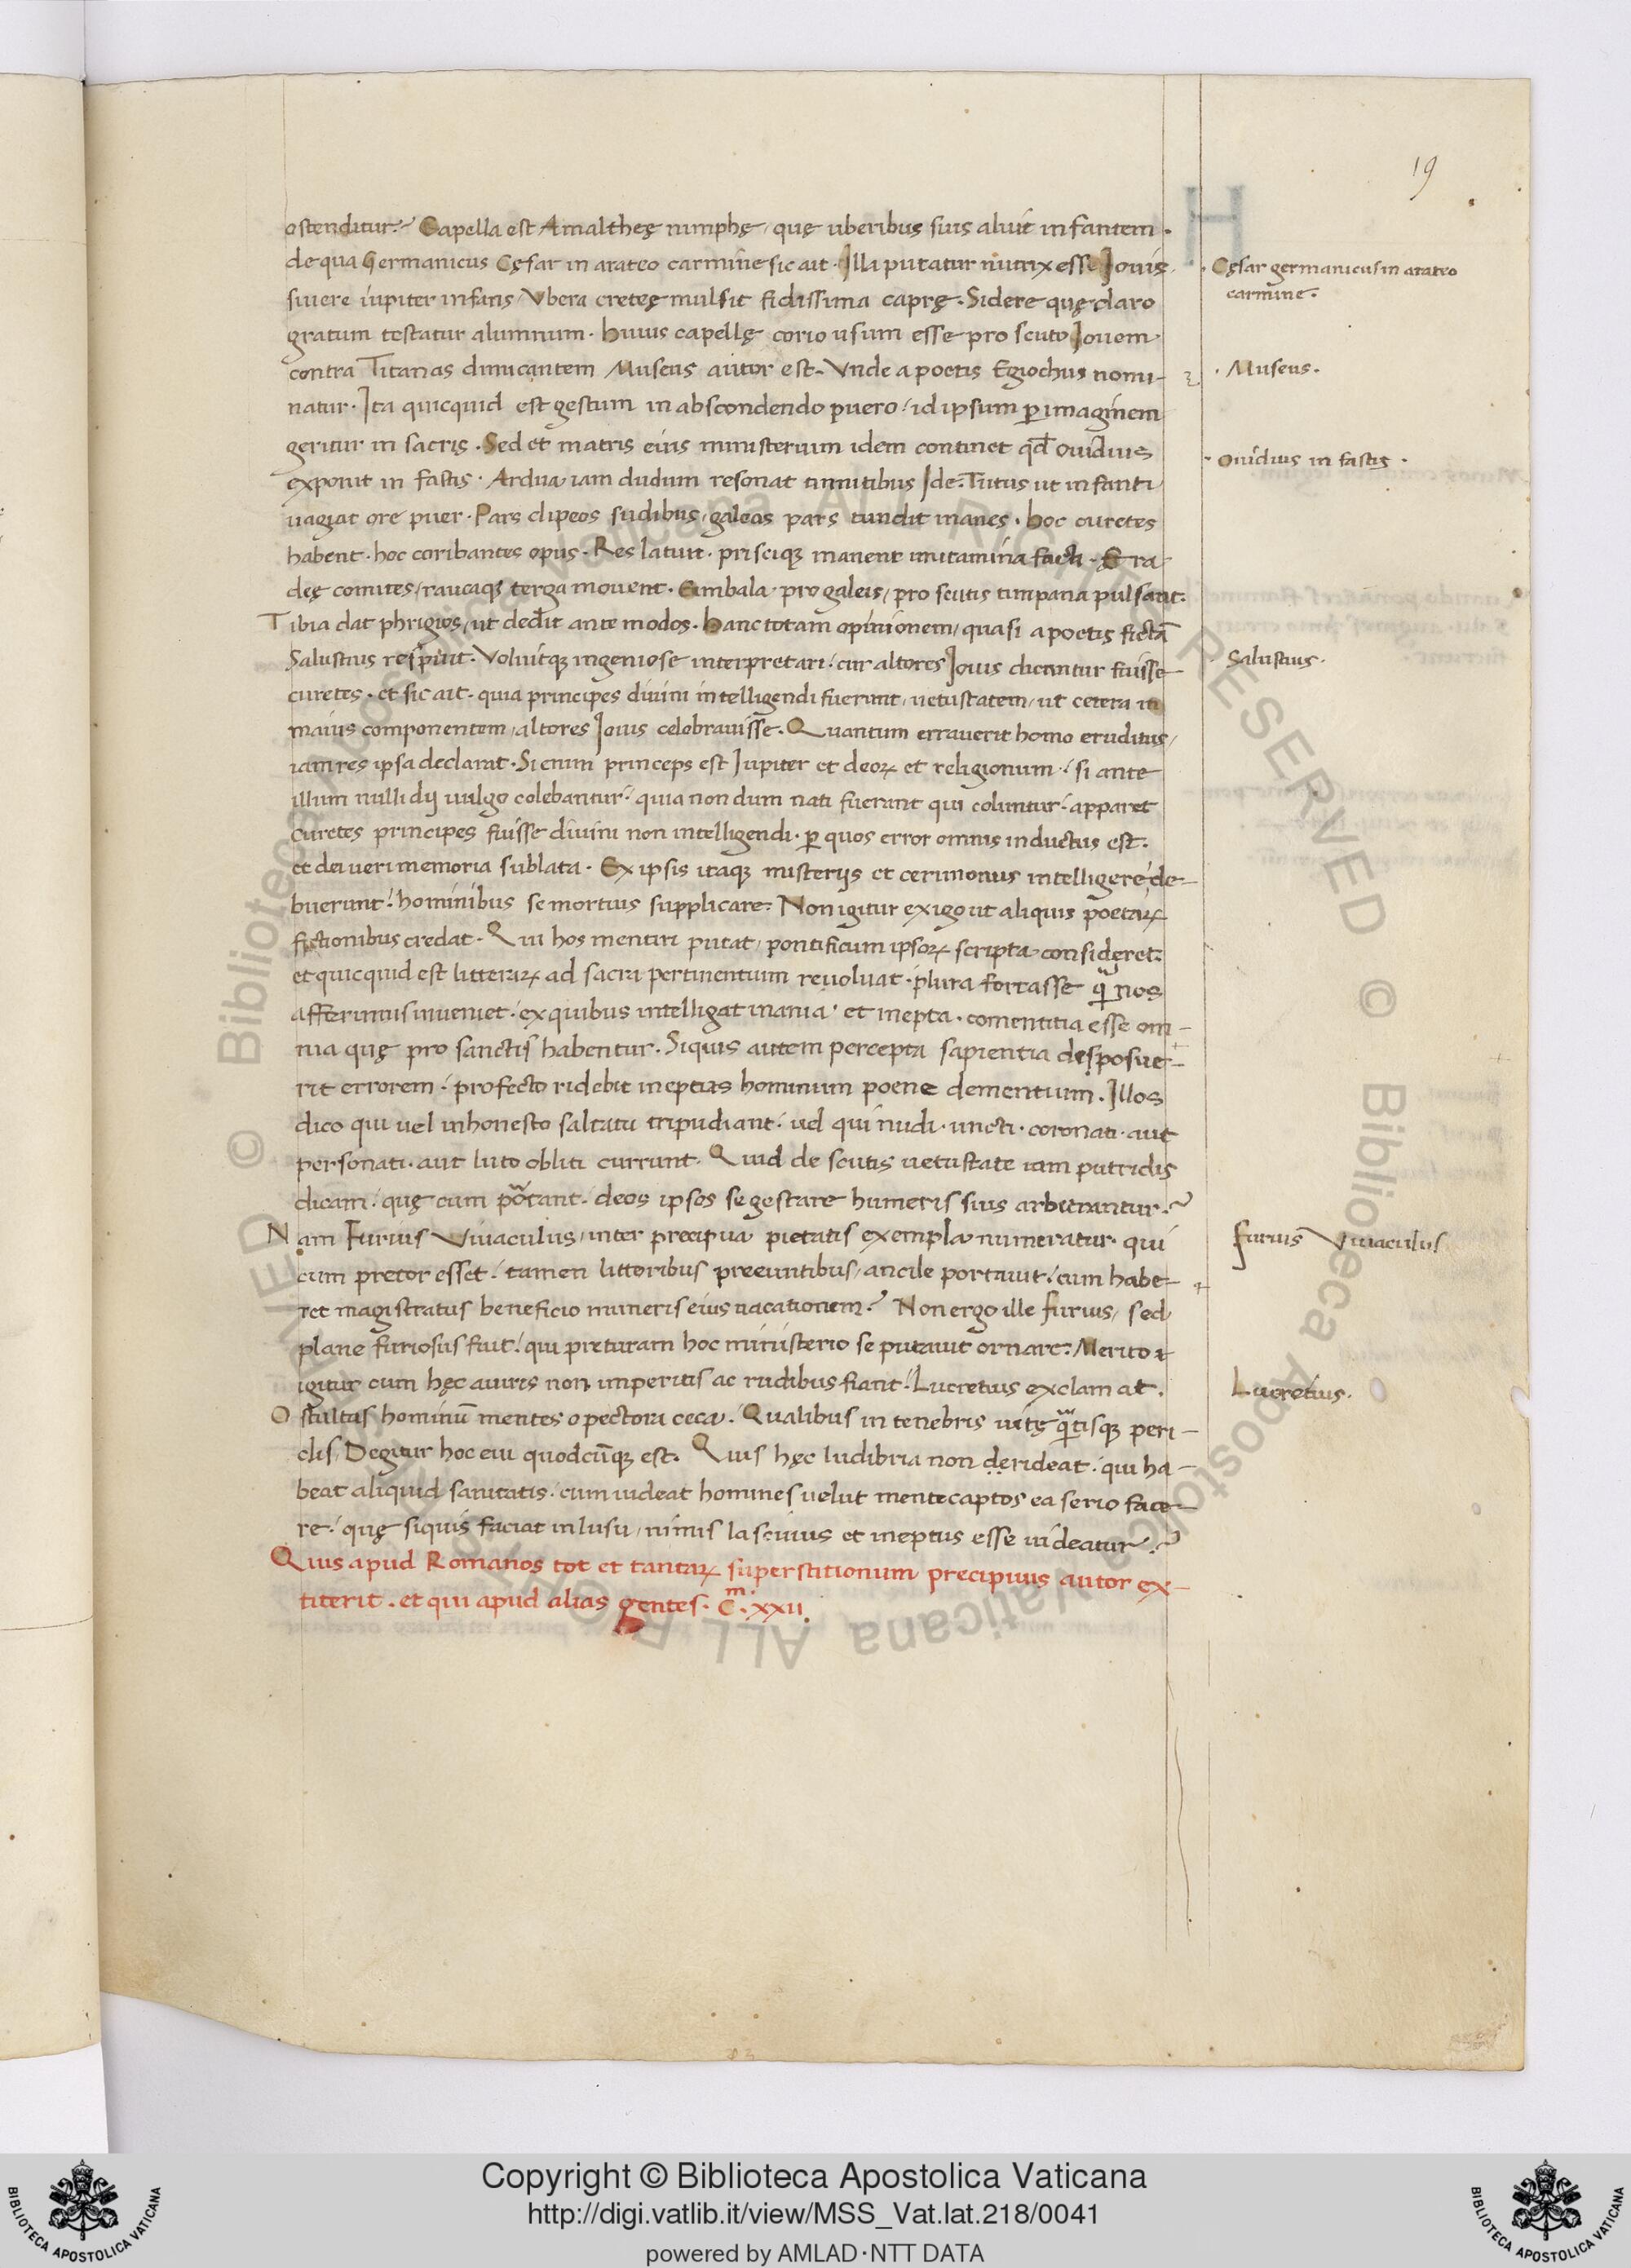 19
ostenditur? Capella est Amalthȩȩ nimphȩ, quȩ uberibus suis aluit infantem.
de qua Germanicus Cȩsar in arateo carmine sic ait. Illa putatur nutrix esse Iouis.
siuere iupiter infans, Vbera cretȩȩ mulsit fidissima caprȩ. Sidere quȩ claro
gratum testatur alumnum. Huius capellȩ corio usum esse pro scuto Iouem
contra Titanas dimicantem Museus autor est. Vnde a poetis Egiochus nomi-
natur. Ita quicquid est gestum in abscondendo puero, id ipsum ꝑ imaginem
geritur in sacris. Sed et matris eius misterium idem continet qd̄ Ouidius
exponit in fastis. Ardua iam dudum resonat tinnitibus Ide. Tutus ut infanti
uagiat ore puer. Pars clipeos sudibus, galeas pars tundit inanes. Hoc curetes
habent. hoc coribantes opus. Res latuit. prisciqꝫ manent imitamina facti. Ȩra
deȩ comites, raucaqꝫ terga mouent. Cimbala. pro galeis, pro scutis timpana pulsant.
Tibia dat phrigios, ut dedit ante modos. Hanc totam opinionem, quasi a poetis fictā
Salustius respuit. Voluitqꝫ ingeniose interpretari. cur altores Iouis dicantur fuisse
curetes. et sic ait. quia principes diuini intelligendi fuerunt, uetustatem, ut cetera in
maius componentem, altores Iouis celebrauisse. Quantum errauerit homo eruditus,
iam res ipsa declarat. Si enim princeps est Iupiter et deoꝝ et religionum. si ante
illum nulli dij uulgo colebantur. quia non dum nati fuerant qui coluntur. apparet
Curetes principes fuisse diuini non intelligendi. ꝑ quos error omnis inductus est.
et dei ueri memoria sublata. Ex ipsis itaqꝫ misterijs et cerimoniis intelligere de-
buerunt. hominibus se mortuis supplicare. Non igitur exigo ut aliquis poetaꝝ
fictionibus credat. Qui hos mentiri putat, pontificum ipsoꝝ scripta consideret.
et quicquid est litteraꝝ ad sacra pertinentium reuoluat. plura fortasse qᷓ nos
afferimus inueniet. ex quibus intelligat inania. et inepta. comentitia esse om-
nia quȩ pro sanctis habentur. Siquis autem percepta sapientia desposue-
rit errorem. profecto ridebit ineptias hominum poene dementium. Illos
dico qui uel inhonesto saltatu tripudiant. uel qui nudi. uncti. coronati. aut
personati. aut luto obliti currunt. Quid de scutis uetustate iam putridis
dicam. quȩ cum portant. deos ipsos se gestare humeris suis arbitrantur?
Nam Furius Viuaculus, inter precipua pietatis exempla numeratur. qui
cum pretor esset. tamen littoribus preeuntibus, ancile portauit. cum habe-
ret magistratus beneficio muneris eius uacationem? Non ergo ille furius, sed
plane furiosus fuit. qui preturam hoc ministerio se putauit ornare. Merito
igitur cum hȩc a uiris non imperitis ac rudibus fiant. Lucretius exclamat.
O stultas hominū mentes o pectora ceca. Qualibus in tenebris uitȩ qᷓtisqꝫ peri-
clis, Degitur hoc eui quodcūqꝫ est. Quis hȩc ludibria non derideat. qui ha-
beat aliquid sanitatis. cum uideat homines uelut mente captos ea serio face-
re. quȩ siquis faciat in lusu, nimis lasciuus et ineptus esse uideatur?
Quis apud Romanos tot et tantaꝝ superstitionum precipuus autor ex-
titerit. et qui apud alias gentes. Cᵐ. xxii
. Cȩsar germanicus in arateo
carmine.
. Museus.
. Ouidius in fastis .
. Salustius.
Furius Viuaculus
Lucretius.
© Biblioteca Apostolica Vaticana ALL RIGHTS RESERVED
Copyright © Biblioteca Apostolica Vaticana
http://digi.vatlib.it/view/MSS_Vat.lat.218/0041
powered by AMLAD·NTT DATA
BIBLIOTECA APOSTOLICA VATICANA
BIBLIOTECA APOSTOLICA VATICANA